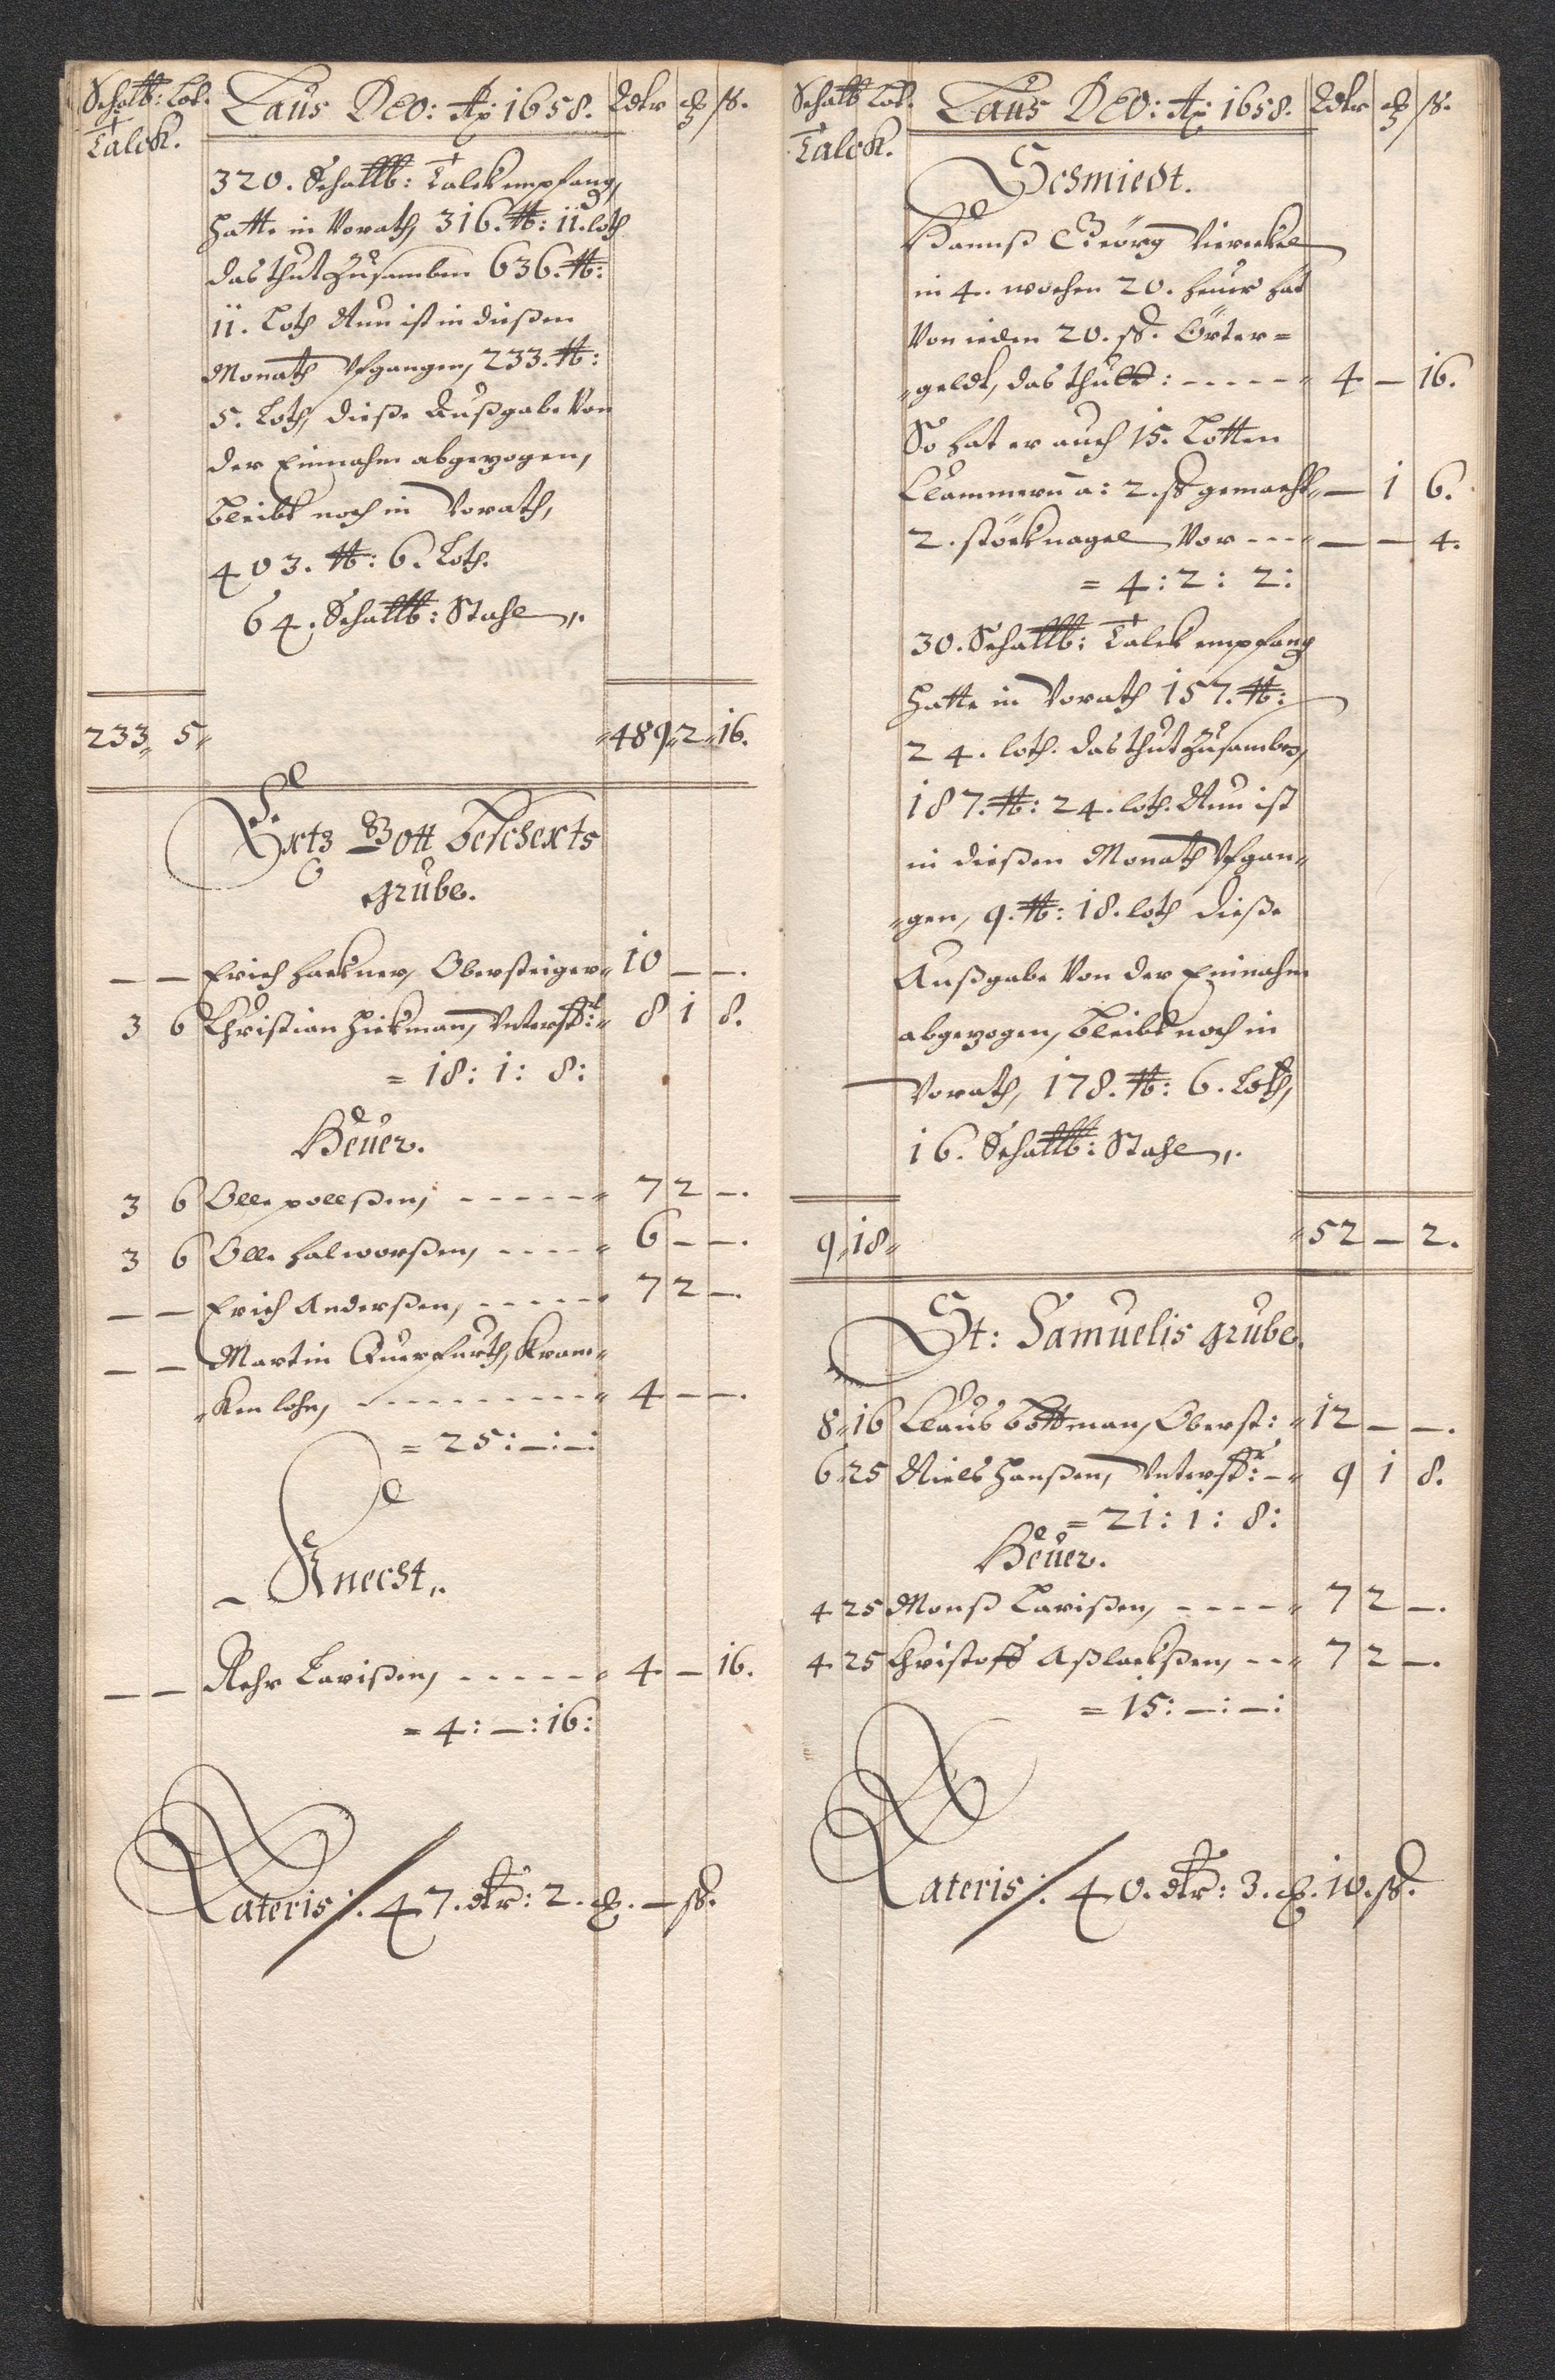 Schalb: Lot. Laus DEO: Ao: 1658. Rdtr ort ß.
Talck.
320. Schallb: Talck empfang,
hatte in Vorath, 316. lb: 11. loth
das thut zusamben 636. lb:
11. Loth Nun ist in dießen
Monath Vfgangen, 233. lb:
5. Loth, dieße Außgabe Von
der Einnahm abgezogen,
bleibt noch in Vorath,
403. lb: 6. Loth.
64. Schallb: Stahl,.
233 5 489 2 16.
Ertz Gott bescherts
grube.
— — Erich Hackner, Obersteiger 10 — —.
3 6 Christian Hickman, Vnterstr: 8 1 8.
= 18: 1: 8:
Heuer.
3 6 Olle pollßen, - - - - - 7 2 —.
3 6 Olle Halworßen, - - - - 6 — —.
— — Erich Anderßen, - - - - - 7 2 —.
— — Martin Querfurth, Kran-
ken lohn, - - - - - - - - - 4 — —.
= 25: —: —:
Knecht,.
— — Rehr Larißen, - - - - - 4 — 16.
= 4: —: 16:
Lateris:/. 47. dtr: 2. ort. — ß.
Schalb Lot. Laus DEO: Ao: 1658. Rdtr ort ß.
Talck.
Schmiedt.
Hannß Georg Viereckel
in 4. wochen 20. heuer hat
Von ieden 20. ß. Örter=
geldt, das thutt: - - - - - 4 — 16.
So hat er auch 15. Lotten
Clammern a: 2. ß gemacht — 1 6.
2. stöcknagel Vor - - - — — 4.
= 4: 2: 2:
30. Schallb: Talck empfang
hatte in Vorath 157. lb:
24. loth. das thut zusamben,
187. lb: 24. loth. Nun ist
in dießen Monath Vfgan-
gen, 9. lb: 18. loth dieße
Außgabe Von der Einnahm
abgezogen, bleibt noch in
Vorath, 178. lb: 6. Loth,
16. Schallb: Stahl,.
9 18 52 — 2.
St: Samuelis grube.
8 16 Claus Bottman, Oberst: 12 — —.
6 25 Niels Hanßen, Vnterstr: - 9 1 8.
= 21: 1: 8:
Heuer.
4 25 Monß Larißen, - - - - 7 2 —.
4 25 Christoff Aßlackßen, - - 7 2 —.
= 15: —: —:
Lateris:/. 40. dtr: 3. ort. 10. ß.